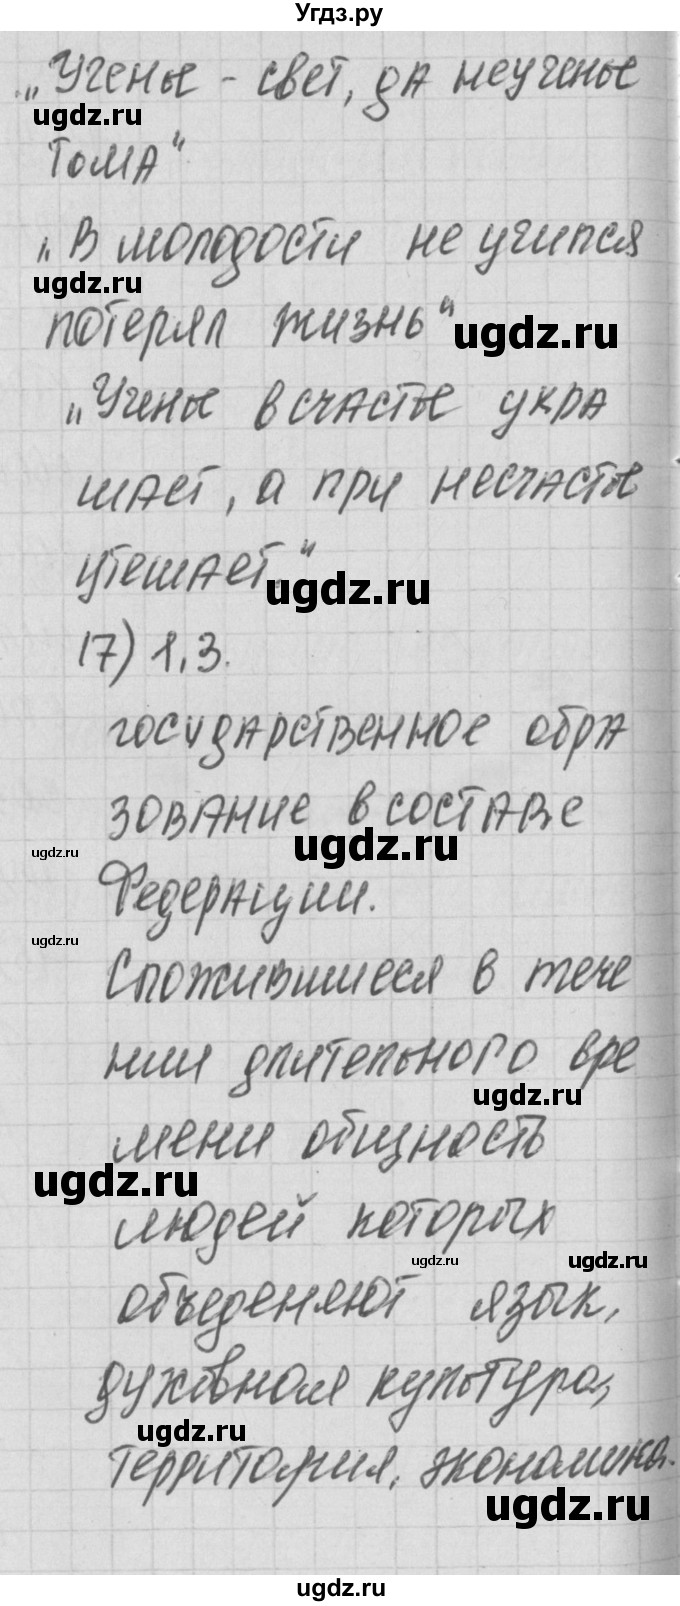 Угдз.ру
„Ученье - свет, да неученье
ugdz.ru
тома"
„В молодости не учился
ugdz.ru
потерял жизнь"
ugdz.ru
„Ученье в счастье укра
шает, а при несчастье
утешает."
ugdz.ru
17) 1,3.
государственное обра
зование в составе
ugdz.ru
ugdz.ru
Федерации.
ugdz.ru
Сложившиеся в тече
нии длительного вре
ugdz.ru
мени общность
ugdz.ru
людей которых
ugdz.ru
ugdz.ru
объеденяют язык,
духовная культура,
ugdz.ru
территория, экономика.
ugdz.ru
ugdz.ru